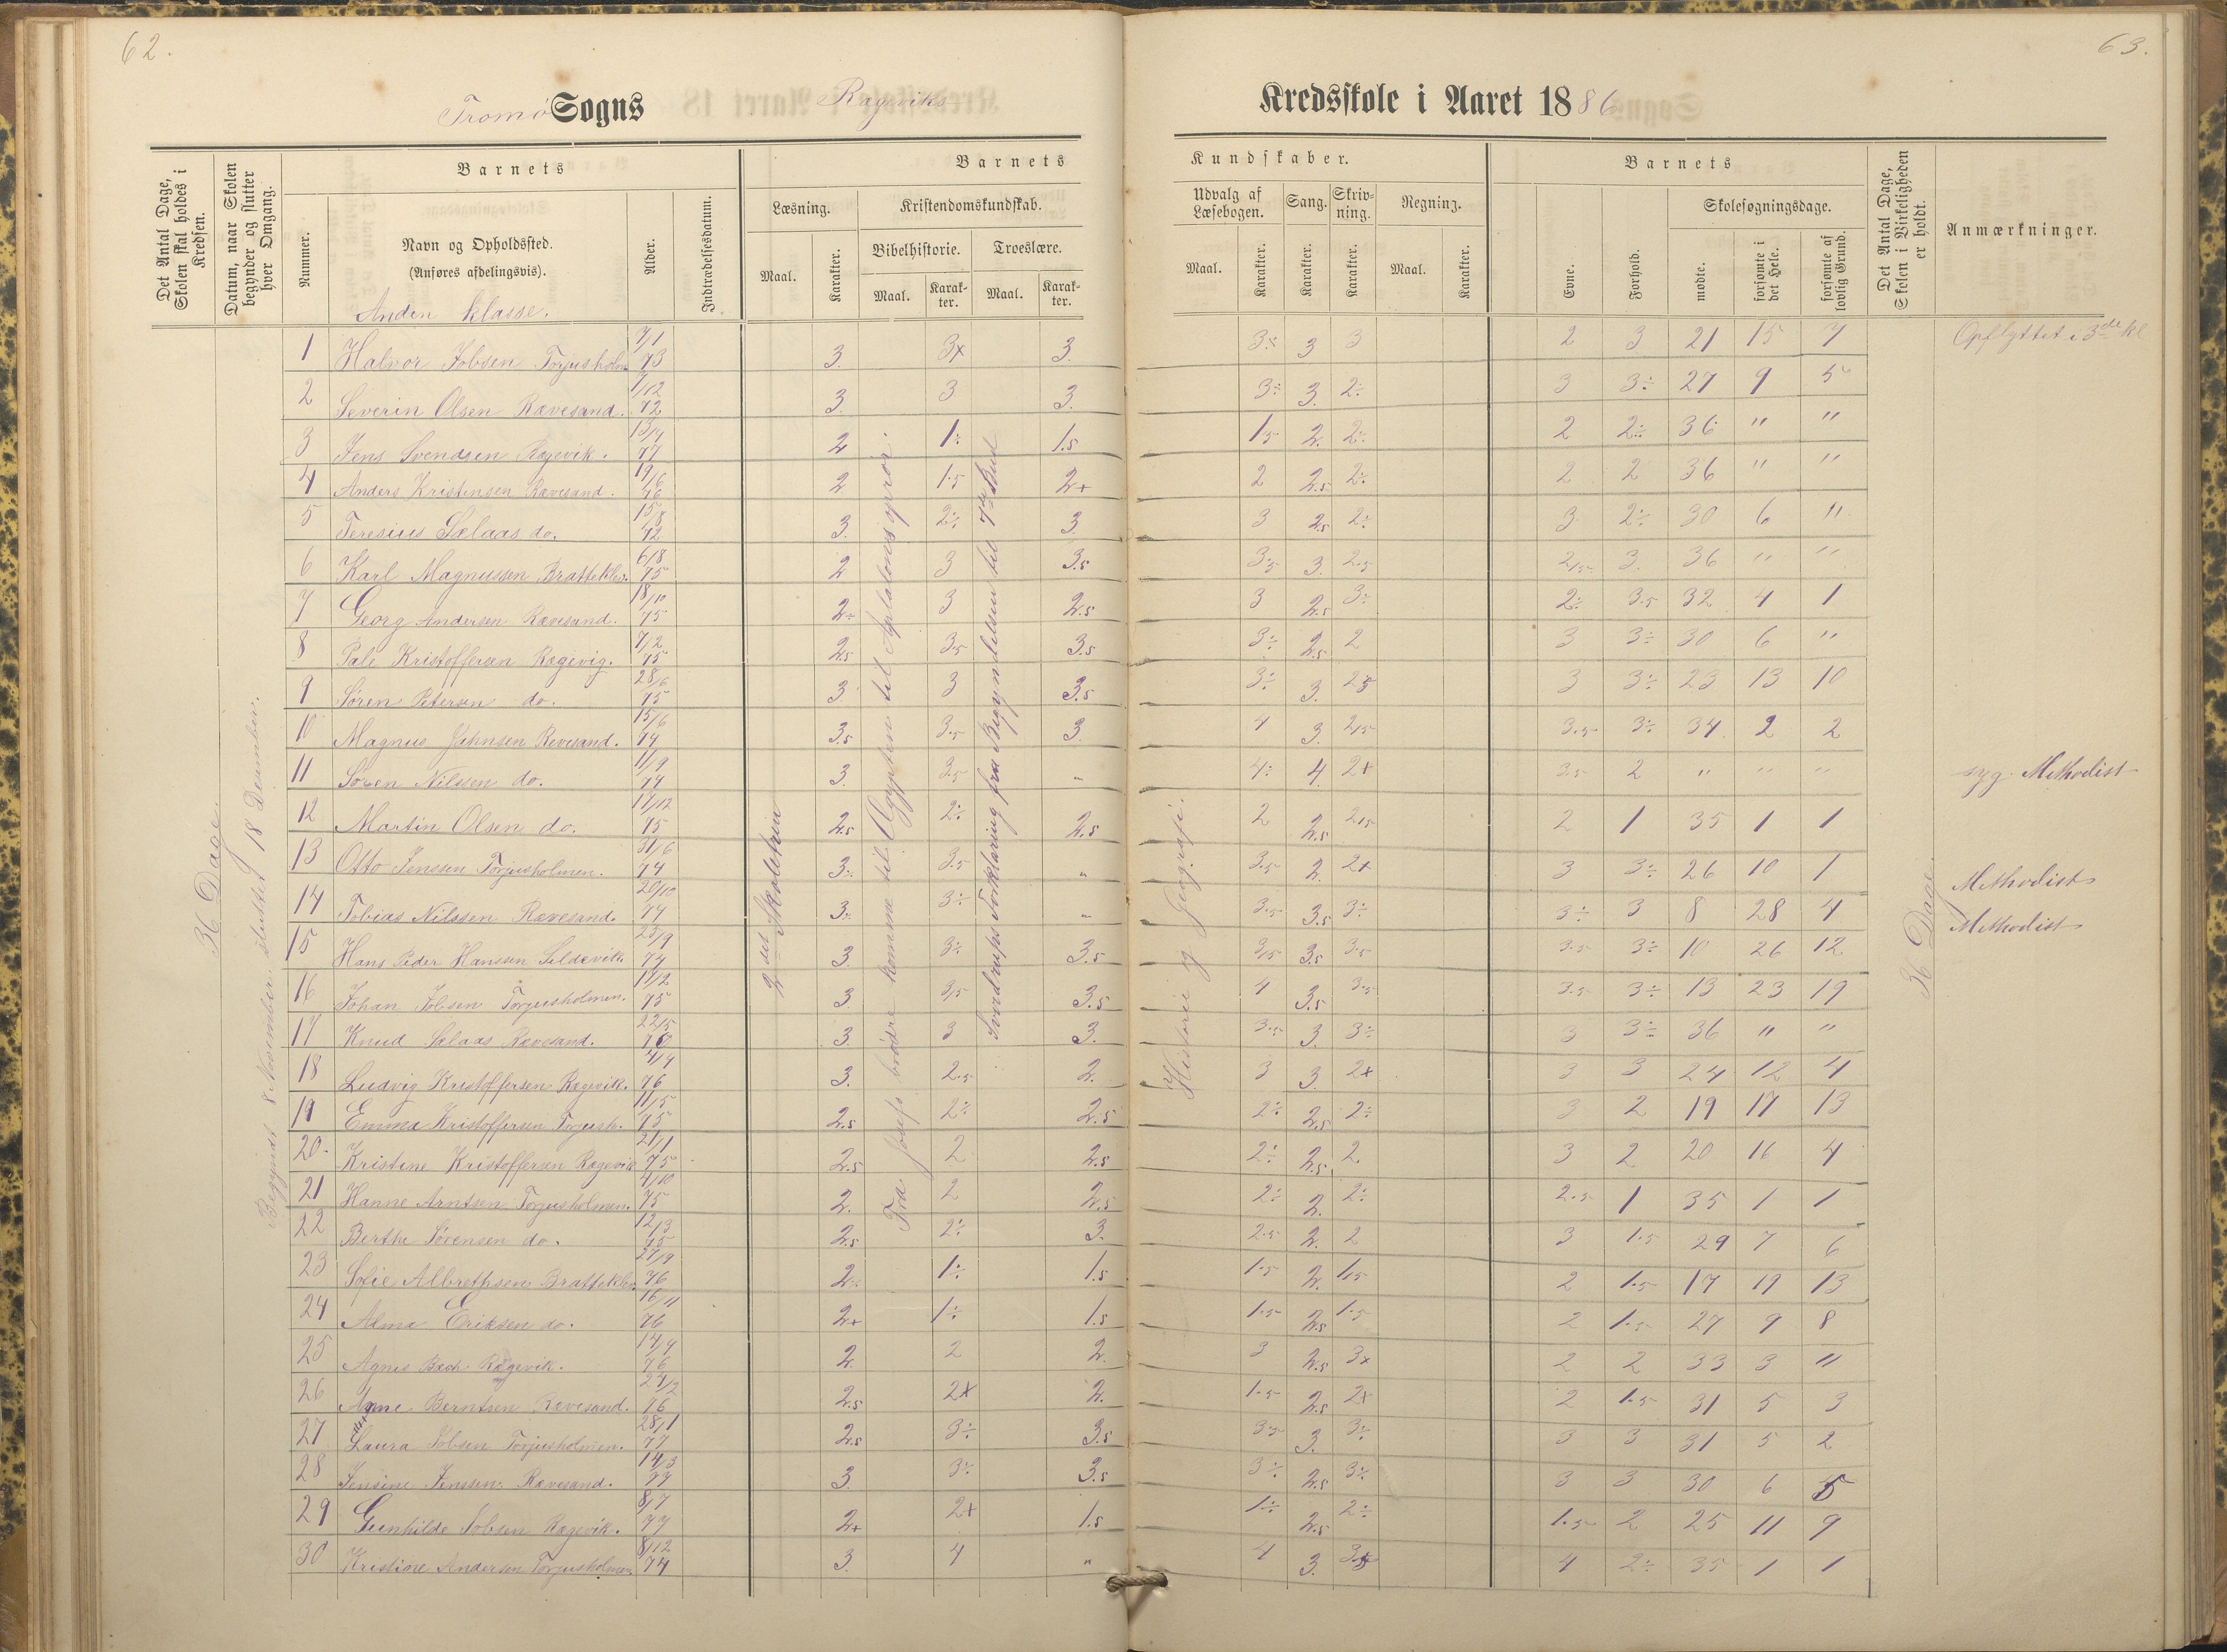 62.
63.
Tromø Sogns
Rægeviks
Kredsskole i Aaret 1886
Det Antal Dage, Skolen skal holdes i Kredsen.
Datum, naar Skolen begynder og slutter hver Omgang.
Nummer.
Barnets
Navn og Opholdssted.
(Anføres afdelingsvis).
Alder.
Indtrædelsesdatum.
Barnets
Læsning.
Maal.
Karakter.
Kristendomskundskab.
Bibelhistorie.
Troeslære.
Maal.
Karakter.
Maal.
Karakter.
Kundskaber.
Udvalg af Læsebogen.
Sang.
Skrivning.
Regning.
Maal.
Karakter.
Karakter.
Karakter.
Maal.
Karakter.
Barnets
Evne.
Forhold.
Skolesøgningsdage.
mødte.
forsømte i det Hele.
forsømte af lovlig Grund.
Det Antal Dage, Skolen i Virkeligheden er holdt.
Anmærkninger.
Anden klasse.
36 Dage.
Begyndt 8 November, sluttet 18 December.
2det Skoletrin
Fra Josefs brødre komme til Ægypten til Absalons oprør.
Sverdrups Forklaring fra Begyndelsen til 7de Bud
Historie og Geografi.
36 Dage.
1 Halvor Jobsen Torjusholm 7/1 73 3. 3x 3. 3x 3 3 2 3 21 15 7 Opflyttet i 3de kl
2 Severin Olsen Rævesand. 7/12 72 3. 3 3. 3÷ 3. 2÷ 3 3÷ 27 9 5
3 Jens Svendsen Rægevik. 13/7 77 2 1÷ 1.5 1.5 2. 2÷ 2 2÷ 36 " "
4 Anders Kristensen Rævesand. 19/6 76 2 1.5 2+ 2 2.5 2÷ 2 2 36 " "
5 Teresius Sælaas do. 15/8 72 3. 2÷ 3. 3 2.5 2÷ 3 2÷ 30 6 "
6 Karl Magnussen Bratteklev. 6/8 75 2 3 3.5 3.5 3. 2.5 2.5 3. 36 " "
7 Georg Andersen Rævesand. 18/10 75 2÷ 3 2.5 3 2.5 3÷ 2÷ 3.5 32 4 1
8 Pale Kristoffersen Rægevig. 7/2 75 2.5 3.5 3.5 3÷ 2.5 2 3 3÷ 30 6 "
9 Søren Petersen do. 28/6 75 3. 3 3.5 3÷ 3. 2.5 3 3÷ 23 13 10
10 Magnus Jahnsen Revesand. 15/6 74 3.5 3.5 3. 4 3. 2.5 3.5 3÷ 34 2 2
11 Søren Nilssen do. 11/9 74 3. 3.5 " 4÷ 4. 2+ 3.5 2 " " " syg. Methodist
12 Martin Olsen do. 17/12 75 2.5 2÷ 2.5 2 2.5 2.5 2 1 35 1 1
13 Otto Jenssen Torjusholmen. 31/6 74 3÷ 3.5 " 3.5 2. 2+ 3 3÷ 26 10 1 Methodist
14 Tobias Nilssen Rævesand. 20/10 74 3÷ 3÷ " 3.5 3.5 3÷ 3÷ 3 8 28 4 Methodist
15 Hans Peder Hanssen Sildevik. 23/9 74 3. 3÷ 3.5 3.5 3.5 3.5 3.5 3÷ 10 26 12
16 Johan Jobsen Torjusholmen. 11/12 75 3. 3.5 3.5 4 3.5 3.5 3.5 3÷ 13 23 19
17 Knud Sælaas Rævesand. 22/5 3. 3 3. 3.5 3. 3÷ 3 3÷ 36 " "
18 Ludvig Kristoffersen Rægevik. 76 3. 2.5 2. 3 3. 2x 3 3 24 12 4
19 Emma Kristoffersen Torjush. 11/5 75 2.5 2÷ 2.5 2÷ 2.5 2÷ 3 2 19 17 13
20. Kristine Kristoffersen Rægevik 21/1 75 2.5 2 2.5 2÷ 2.5 2. 3 2 20 16 4
21 Hanne Arntsen Torjusholmen. 4/10 75 2. 2 2.5 2÷ 2. 2÷ 2.5 1 35 1 1
22 Berthe Sørensen do. 12/3 75 2.5 2÷ 3. 2.5 2. 2 3 1.5 29 7 6
23 Sofie Albrethsen Bratteklev. 27/9 76 2÷ 1÷ 1.5 1.5 2. 1.5 2 1.5 17 19 13
24 Alma Eriksen do. 16/11 76 2+ 1÷ 1.5 1.5 2.5 1.5 2 1.5 27 9 8
25 Agnes Bach Rægevik. 76 2. 2 2. 3 2.5 3x 2 2 33 3 "
26 Anne Berntsen Rævesand. 76 2.5 2x 2. 1.5 2.5 2x 2 1.5 31 5 3
27 Laura Jobsen Torjusholmen. 28/1 77 2.5 3÷ 3.5 3.5 3. 3÷ 3 3 31 5 2
28 Jensine Jenssen Rævesand. 14/3 77 3. 3÷ 3.5 3÷ 2.5 3÷ 3 3 30 6 5
29 Gunhilde Jobsen Rægevik. 8/7 77 2+ 2+ 1.5 1÷ 2.5 2÷ 1.5 2 25 11 9
30 Kristine Andersen Torjusholmen 8/12 74 3. 4 " 4 3. 4 2÷ 35 1 1